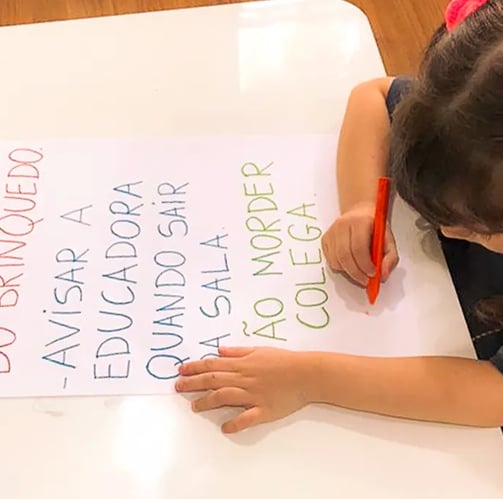 DO BRINQUEDO.
- AVISAR A
EDUCADORA
QUANDO SAIR
DA SALA.
ÃO MORDER
COLEGA.